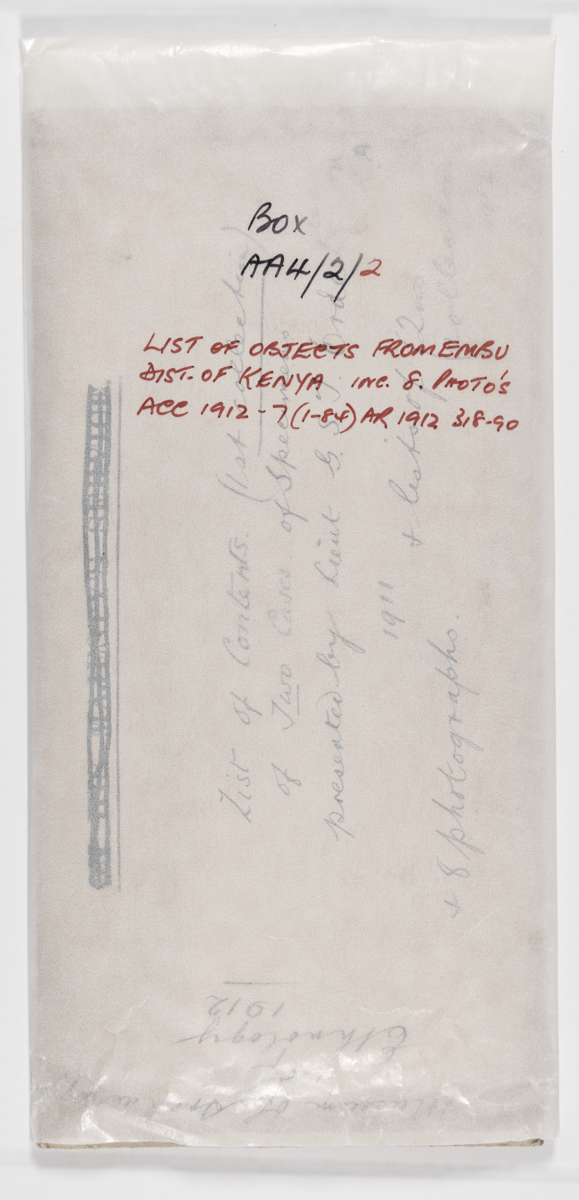 Box
AA4/2/2
LIST OF OBJECTS FROM EMBU
DIST. OF KENYA INC. 8. PHOTO'S
ACC 1912-7(1-84) AR 1912 318-90
List of Contents. (1st collection)
of Two Cases. of Specimens
presented by Lieut G. S. J. Orde
1911 & list of 2nd collection
+ 8 photographs.
Museum of
Ethnology
1912